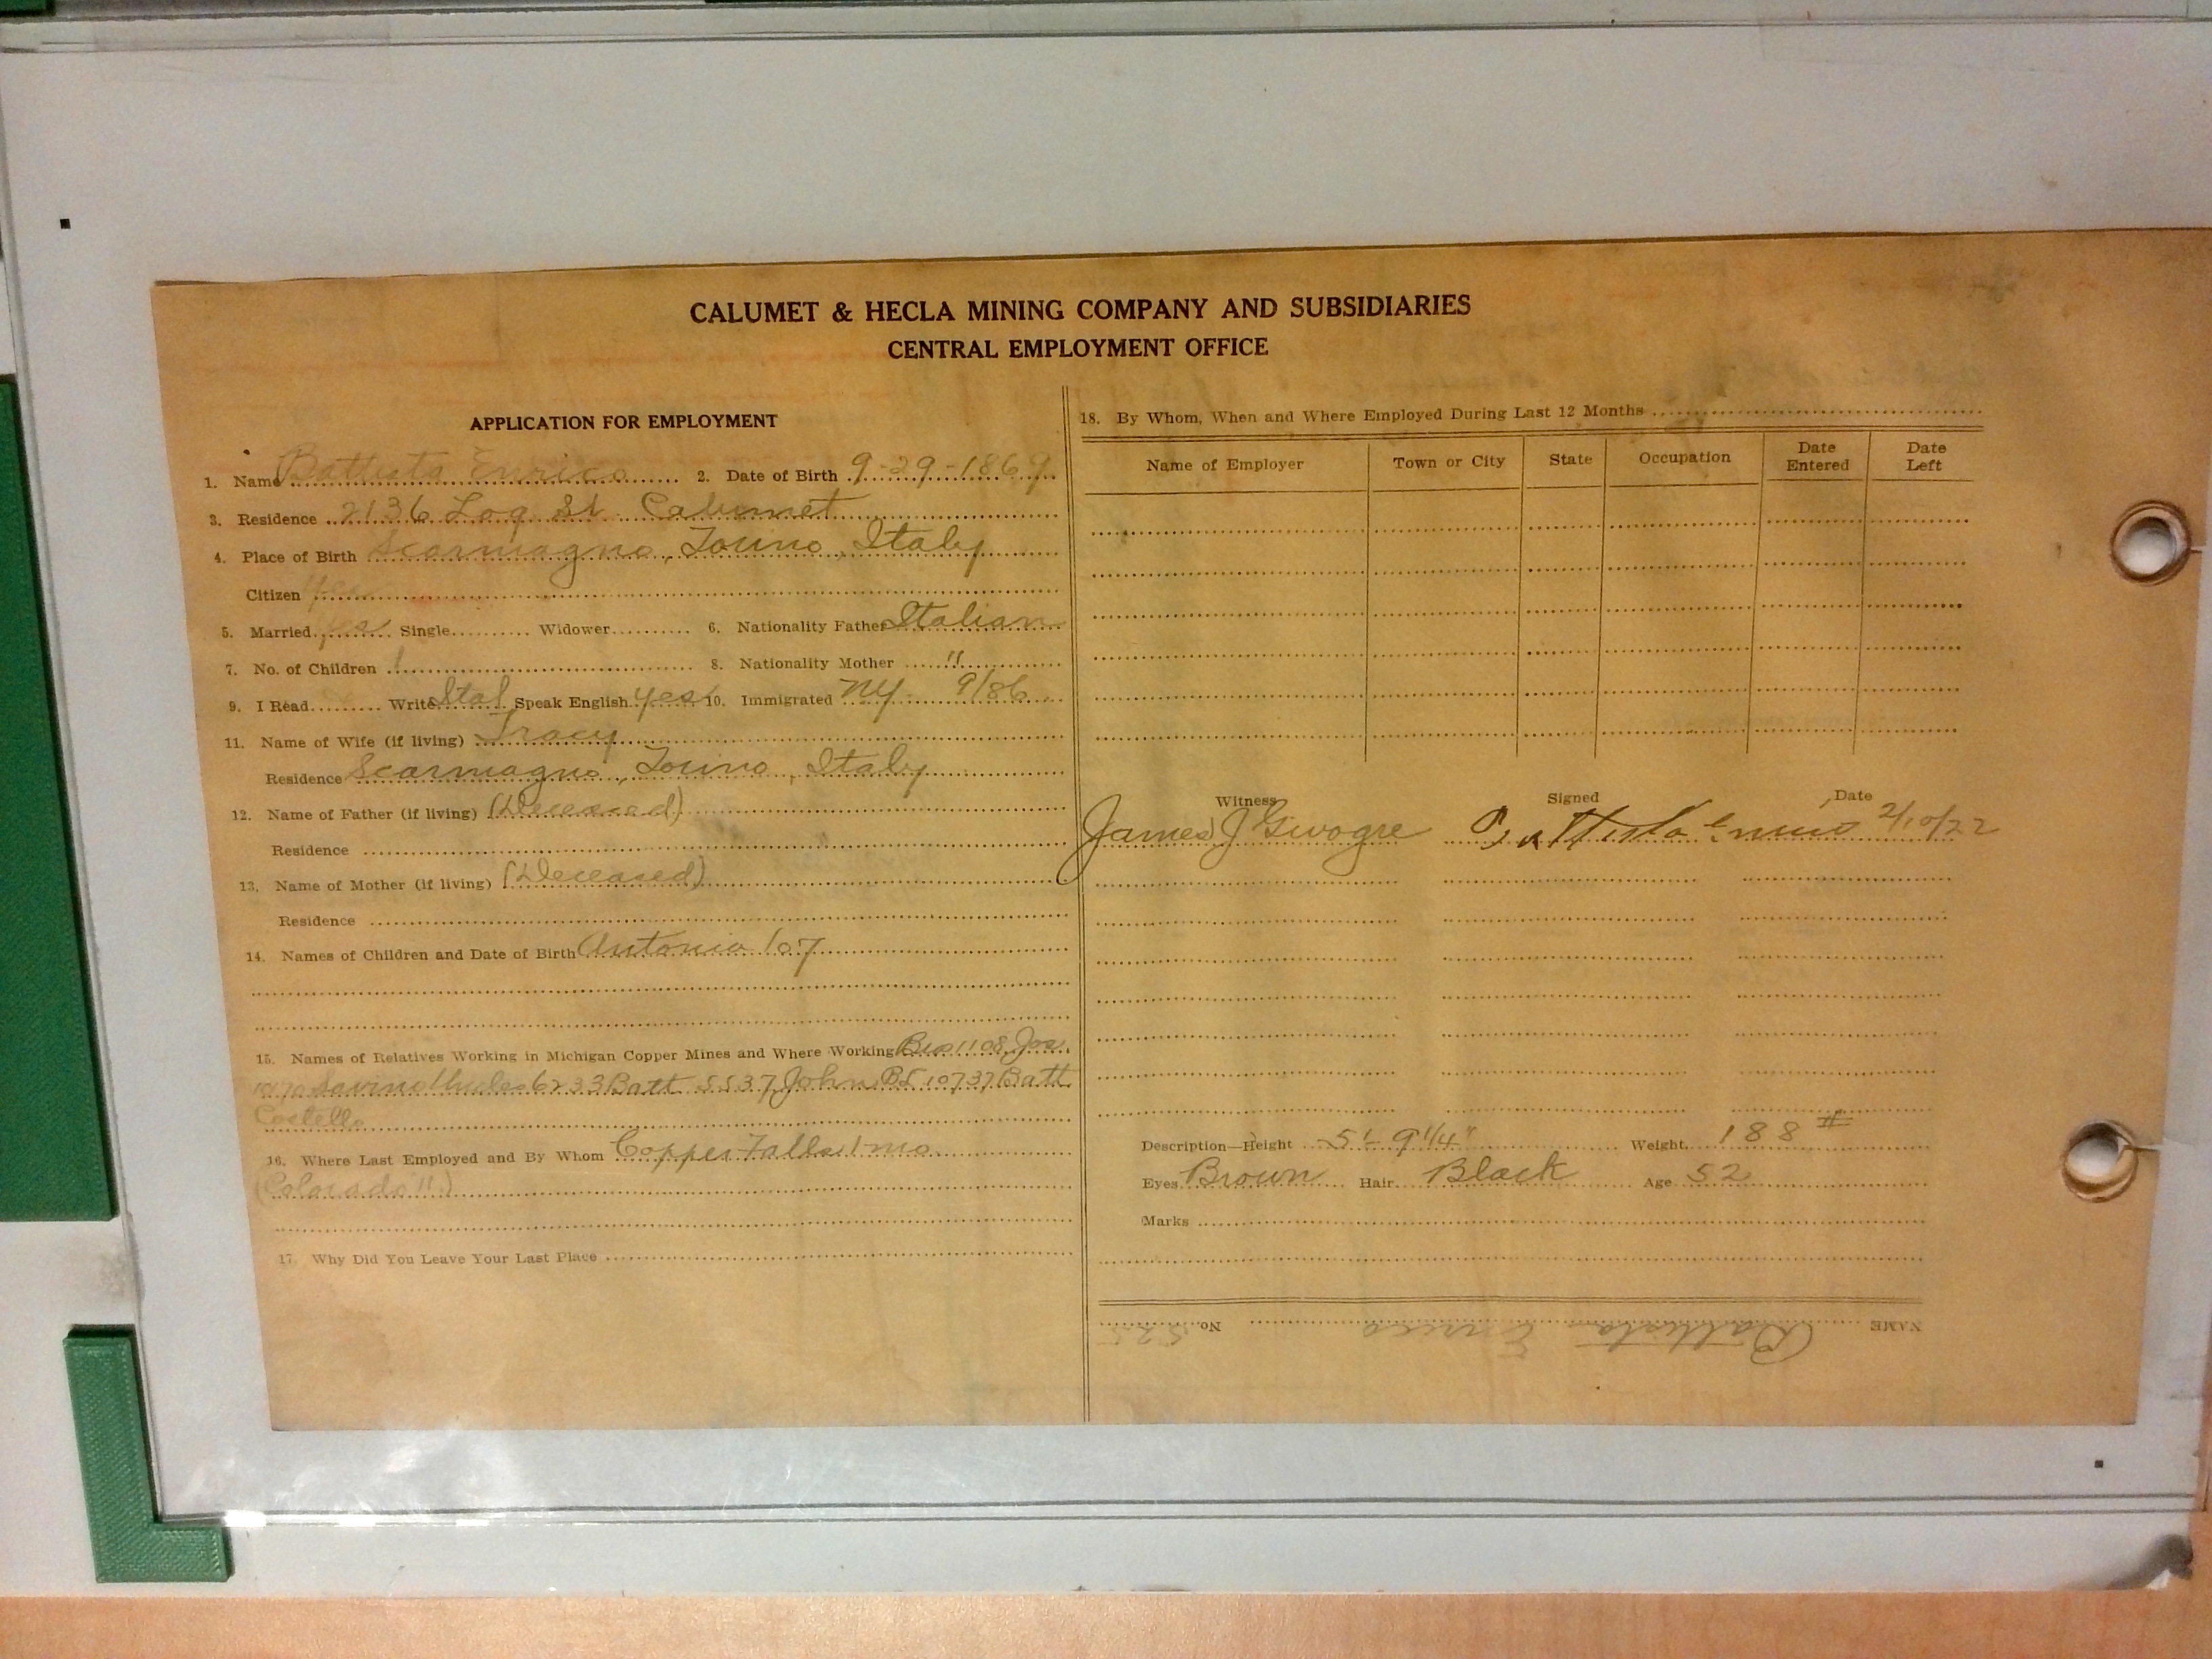 CALUMET & HECLA MINING COMPANY AND SUBSIDIARIES
CENTRAL EMPLOYMENT OFFICE
APPLICATION FOR EMPLOYMENT
1. Name Battista Enrico 2. Date of Birth 9-29-1869
3. Residence 2136 Log St Calumet
4. Place of Birth Scarmagno, Torino, Italy
Citizen yes
5. Married yes Single Widower 6. Nationality Father Italian
7. No. of Children 1 8. Nationality Mother "
9. I Read Write Ital Speak English yes 10. Immigrated NY 9/86
11. Name of Wife (if living) Tracy
Residence Scarmagno, Torino, Italy
12. Name of Father (if living) (Deceased)
Residence
13. Name of Mother (if living) (Deceased)
Residence
14. Names of Children and Date of Birth Antonia 107
15. Names of Relatives Working in Michigan Copper Mines and Where Working Bro 1108 Joe
Savino 6233 Batt 5537 John BL 10737 Batt
Costello
16. Where Last Employed and By Whom Copper Falls 1 mo
(Colorado 11)
17. Why Did You Leave Your Last Place
18. By Whom, When and Where Employed During Last 12 Months
Name of Employer Town or City State Occupation Date Entered Date Left
Witness Signed Date
James J Battista Enrico 2/10/22
Description—Height 5'-9 1/4" Weight 188 #
Eyes Brown Hair Black Age 52
Marks
NAME Battista Enrico No. 525